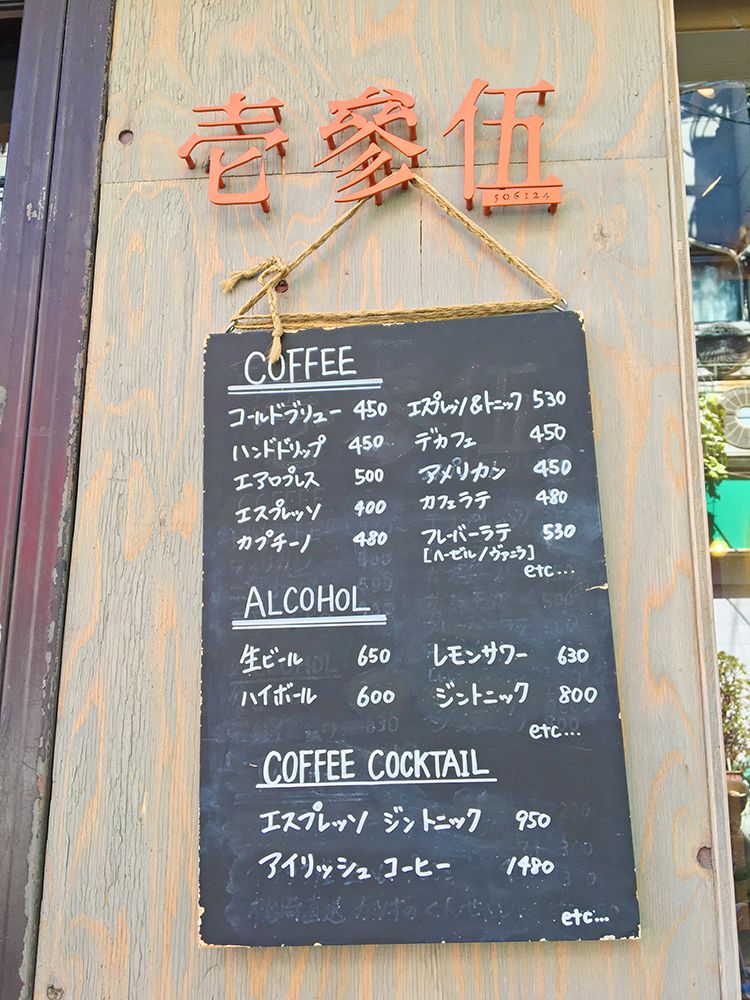 壱参伍
506124
COFFEE
コールドブリュー 450 エスプレッソ&トニック 530
ハンドドリップ 450 デカフェ 450
エアロプレス 500 アメリカン 450
エスプレッソ 400 カフェラテ 480
カプチーノ 480 フレーバーラテ 530
[ヘーゼル/ヴァニラ]
etc...
ALCOHOL
生ビール 650 レモンサワー 630
ハイボール 600 ジントニック 800
etc...
COFFEE COCKTAIL
エスプレッソ ジントニック 950
アイリッシュ コーヒー 1480
etc...